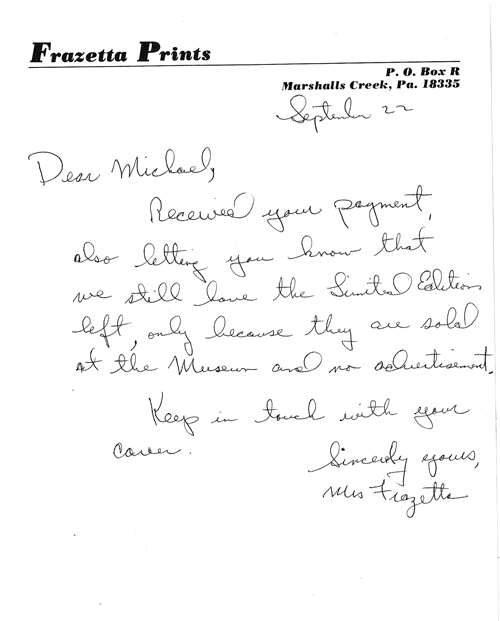 Frazetta Prints
P. O. Box R
Marshalls Creek, Pa. 18335
September 22
Dear Michael,
Received your payment,
also letting you know that
we still have the Limited Editions
left, only because they are sold
at the Museum and no advertisement.
Keep in touch with your
career.
Sincerely yours,
Mrs Frazetta